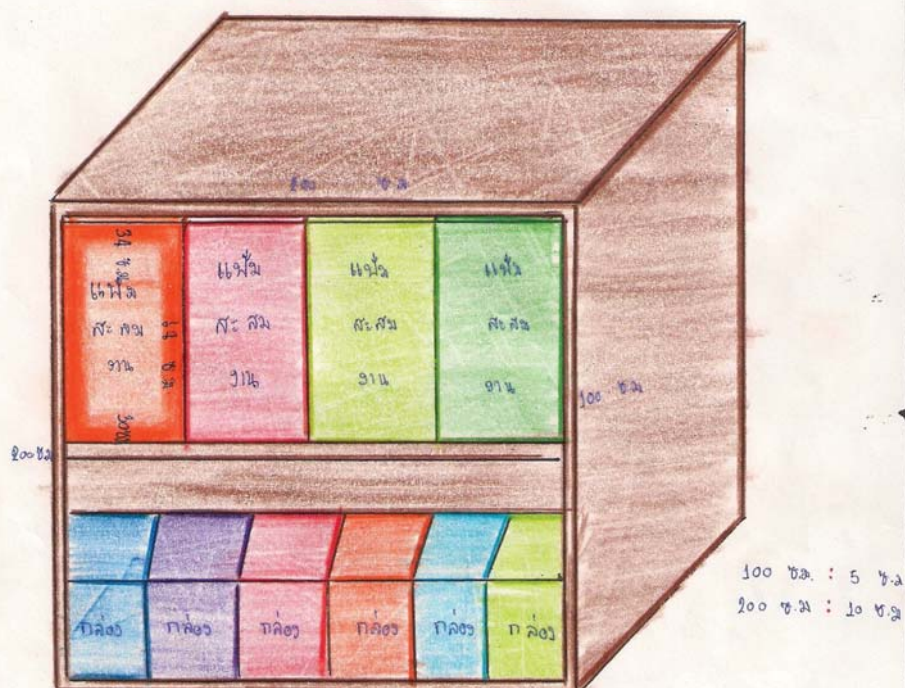 200 ซ.ม
34 ซ.ม
แฟ้ม
สะสม
งาน
แฟ้ม
สะสม
งาน
แฟ้ม
สะสม
งาน
แฟ้ม
สะสม
งาน
100 ซ.ม
200 ซ.ม
กล่อง
กล่อง
กล่อง
กล่อง
กล่อง
กล่อง
100 ซ.ม. : 5 ซ.ม
200 ซ.ม : 10 ซ.ม